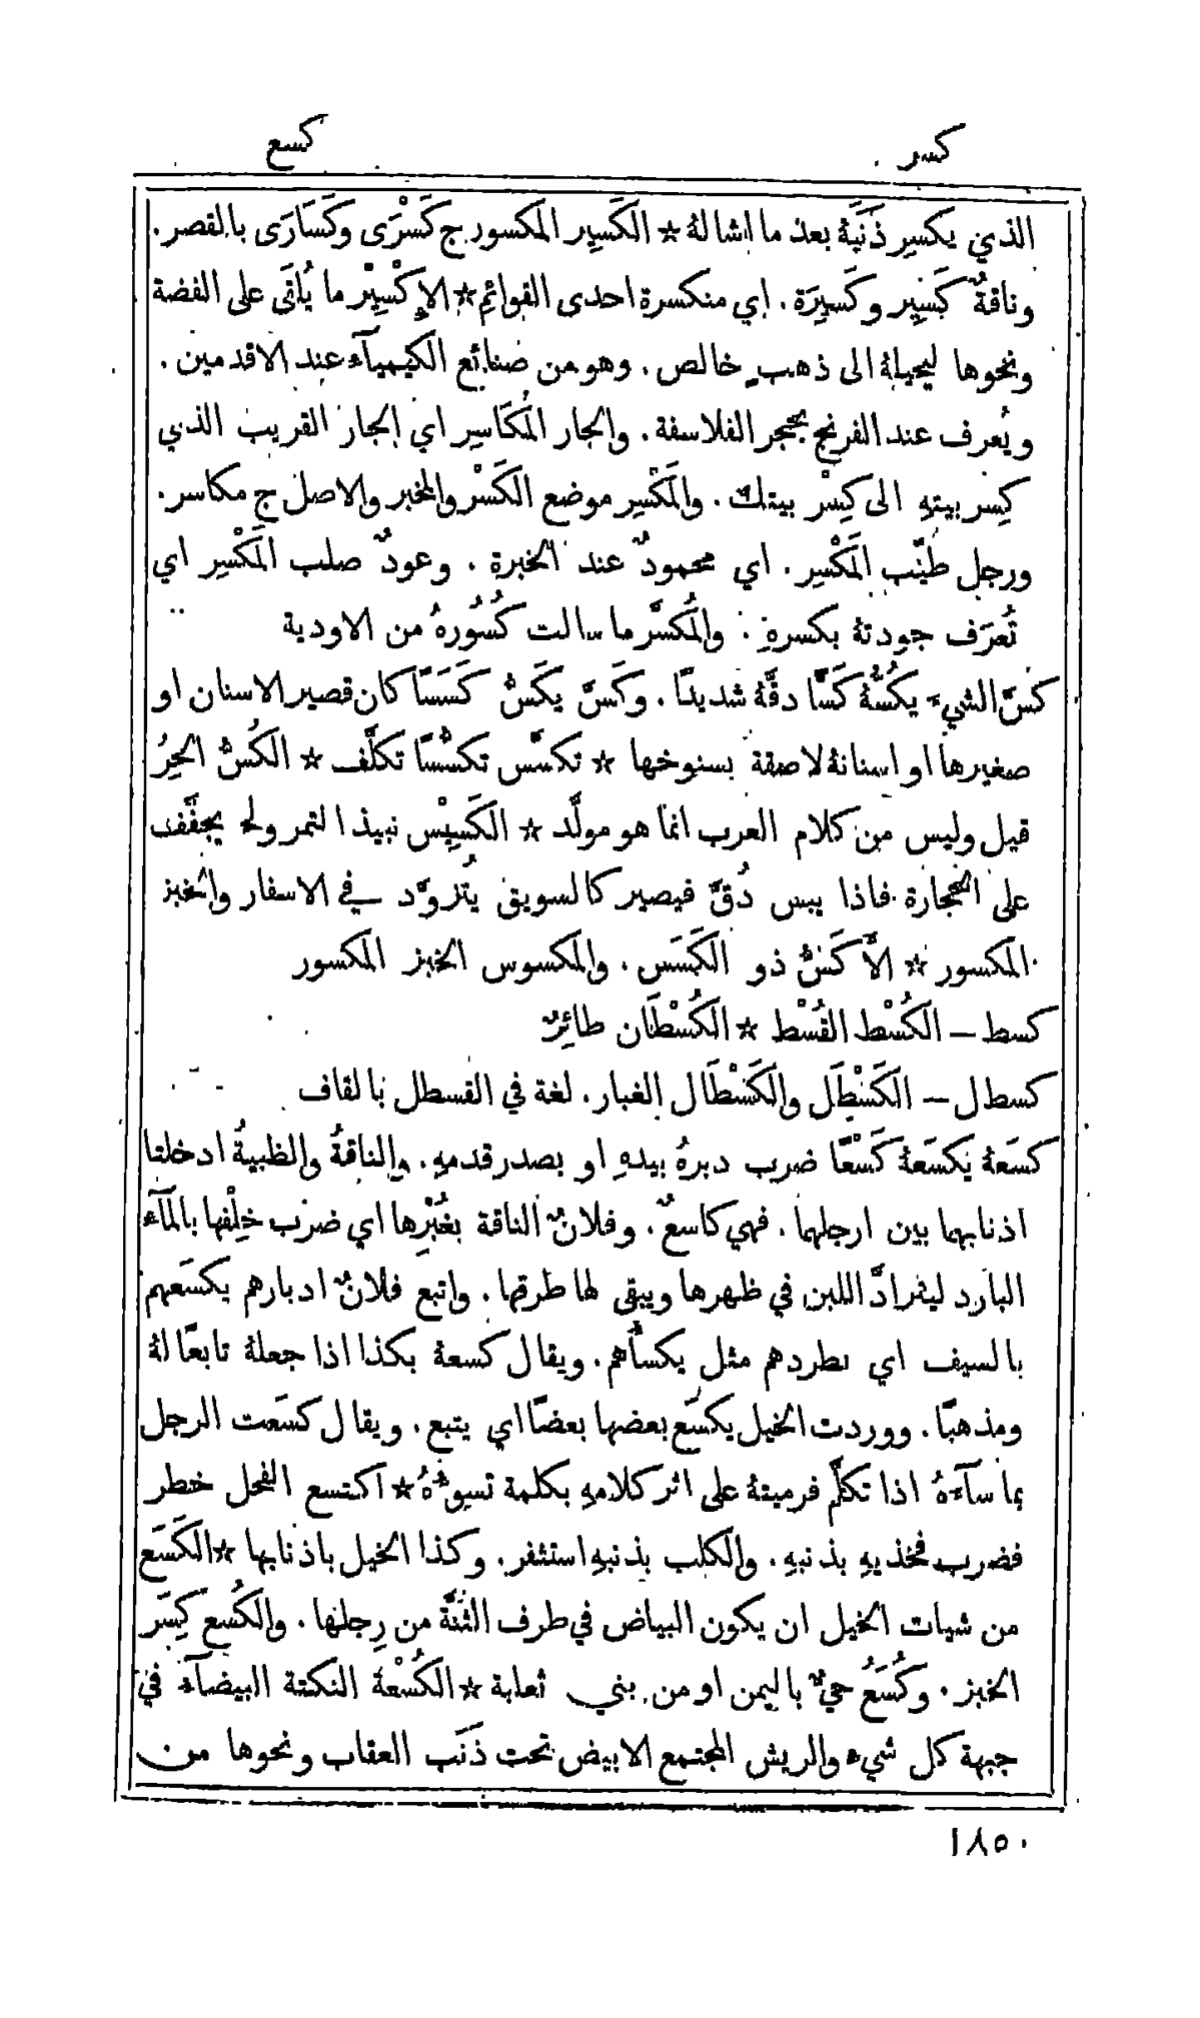 كسر
كسع
الذي يكسِر ذَنَبَهُ بعد ما اشالهُ ☆ الكَسِير المكسور ج كَسْرَى وكَسَارَى بالقصر.
وناقةٌ كَسِير وكَسِيرَة. اي منكسرة احدى القوائمِ ☆ الإِكْسِيْر ما يُلقَى على الفضة
ونحوها ليحيلهُ الى ذهبٍ خالص. وهو من صنائع الكيمياَء عند الاقدمين.
ويُعرف عند الفرنج بحجر الفلاسفة. والجار المُكَاسِر اي الجار القريب الذي
كِسر بيتهِ الى كِسْر بيتك. والمَكْسِر موضع الكَسْر والمخبر والاصل ج مكاسر.
ورجل طيّب المَكْسِر. اي محمودٌ عند الخبرة. وعودٌ صلب المَكْسِر اي
تُعرَف جودتهُ بكسرهِ. والمُكسَّر ما سالت كُسُورهُ من الاودية
كسَّ الشيَء يكُسُّهُ كَسًّا دقَّهُ شديدًا. وكَسَّ يكَسُّ كَسَسًا كان قصير الاسنان او
صغيرها او اسنانهُ لاصقة بسنوخها ☆ تكسَّس تكسُّسًا تكلَّف ☆ الكُسُّ الحِرُ
قيل وليس من كلام العرب انما هو مولَّد ☆ الكَسِيْس نبيذ التمر ولحم يجفَّف
على الحجارة فاذا يبس دُقَّ فيصير كالسويق يُتزوَّد في الاسفار والخبز
المكسور ☆ الأَكَسُّ ذو الكَسَس. والمكسوس الخبز المكسور
كسط – الكُسْط القُسْط ☆ الكُسْطَان طائِرٌ
كسطل – الكَسْطَل والكَسْطَال الغبار. لغة في القسطل بالقاف
كسَعَهُ يكسَعهُ كَسْعًا ضرب دبرهُ بيدهِ او بصدر قدمهِ. والناقةُ والظبيةُ ادخلتا
اذنابهما بين ارجلهما. فهي كاسعٌ. وفلانٌ الناقة بغُبْرِها اي ضرب خِلْفها بالمآء
البارد ليترادَّ اللبن في ظهرها ويبقى لها طرقها. واتبع فلانٌ ادبارهم يكسَعهم
بالسيف اي يطردهم مثل يكسأُهم. ويقال كسعهُ بكذا اذا جعلهُ تابعًا لهُ
ومذهبًا. ووردت الخيل يكسَع بعضها بعضًا اي يتبع. ويقال كسَعت الرجل
بما سآءهُ اذا تكلَّم فرميتهُ على اثر كلامهِ بكلمة تسوءُهُ ☆ اكتسع الفحل خطر
فضرب فخذيهِ بذنبهِ. والكلب بذنبهِ استثفر. وكذا الخيل باذنابها ☆ الكَسَع
من شيات الخيل ان يكون البياض في طرف الثُنَّة من رِجلها. والكُسع كِسَر
الخبز. وكُسَعُ حيٌّ باليمن او من بني ثعلبة ☆ الكُسْعَة النكتة البيضآء في
جبهة كل شيء والريش المجتمع الابيض تحت ذَنَب العقاب ونحوها من
١٨٥٠